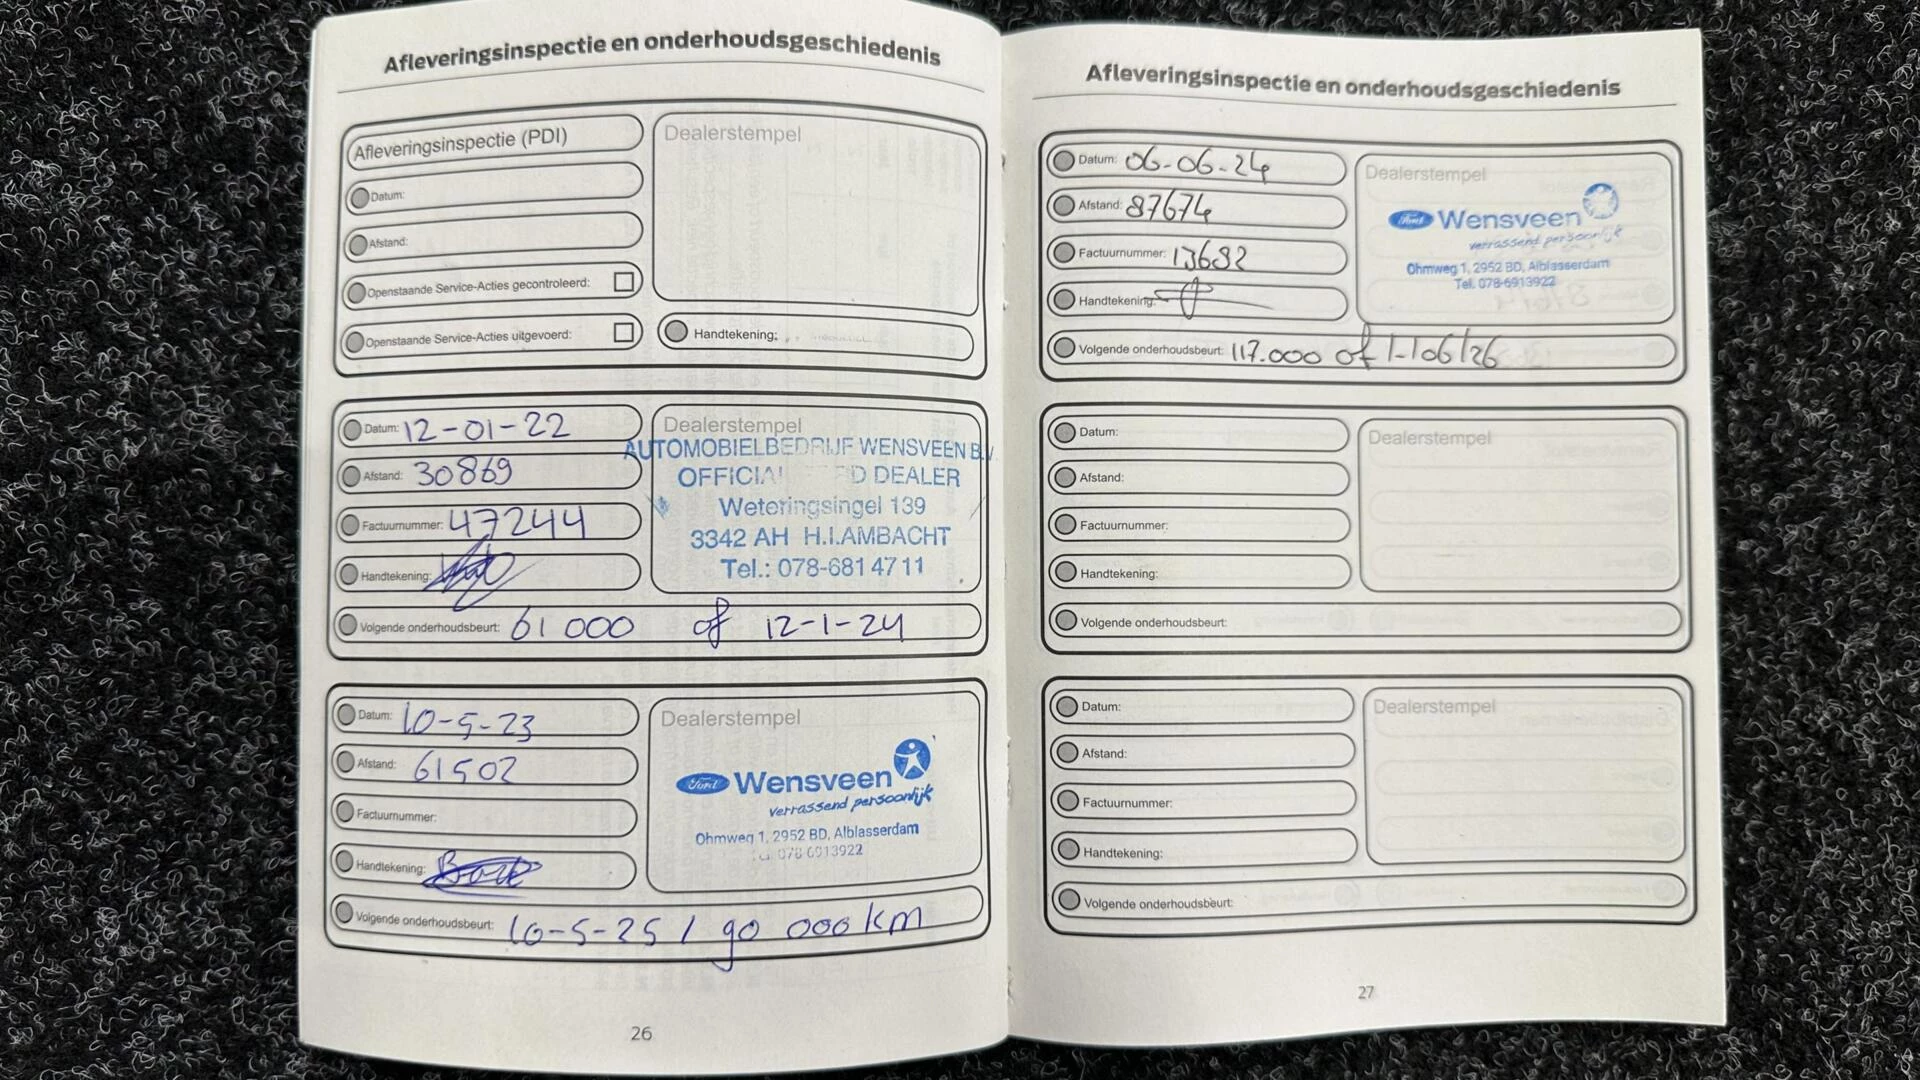 Afleveringsinspectie en onderhoudsgeschiedenis
Afleveringsinspectie (PDI)
Datum:
Afstand:
Openstaande Service-Acties gecontroleerd:
Openstaande Service-Acties uitgevoerd:
Dealerstempel
Handtekening:
Datum: 12-01-22
Afstand: 30869
Factuurnummer: 47244
Handtekening:
Dealerstempel
AUTOMOBIELBEDRIJF WENSVEEN B.V.
OFFICIAL D DEALER
Weteringsingel 139
3342 AH H.I.AMBACHT
Tel.: 078-681 47 11
Volgende onderhoudsbeurt: 61 000 of 12-1-24
Datum: 10-5-23
Afstand: 61502
Factuurnummer:
Handtekening:
Dealerstempel
Ford Wensveen
verrassend persoonlijk
Ohmweg 1, 2952 BD, Alblasserdam
Tel. 078-6913922
Volgende onderhoudsbeurt: 10-5-25 / 90 000 km
26
Afleveringsinspectie en onderhoudsgeschiedenis
Datum: 06-06-24
Afstand: 87674
Factuurnummer: 13692
Handtekening:
Dealerstempel
Ford Wensveen
verrassend persoonlijk
Ohmweg 1, 2952 BD, Alblasserdam
Tel. 078-6913922
Volgende onderhoudsbeurt: 117.000 of
Datum:
Afstand:
Factuurnummer:
Handtekening:
Dealerstempel
Volgende onderhoudsbeurt:
Datum:
Afstand:
Factuurnummer:
Handtekening:
Dealerstempel
Volgende onderhoudsbeurt:
27